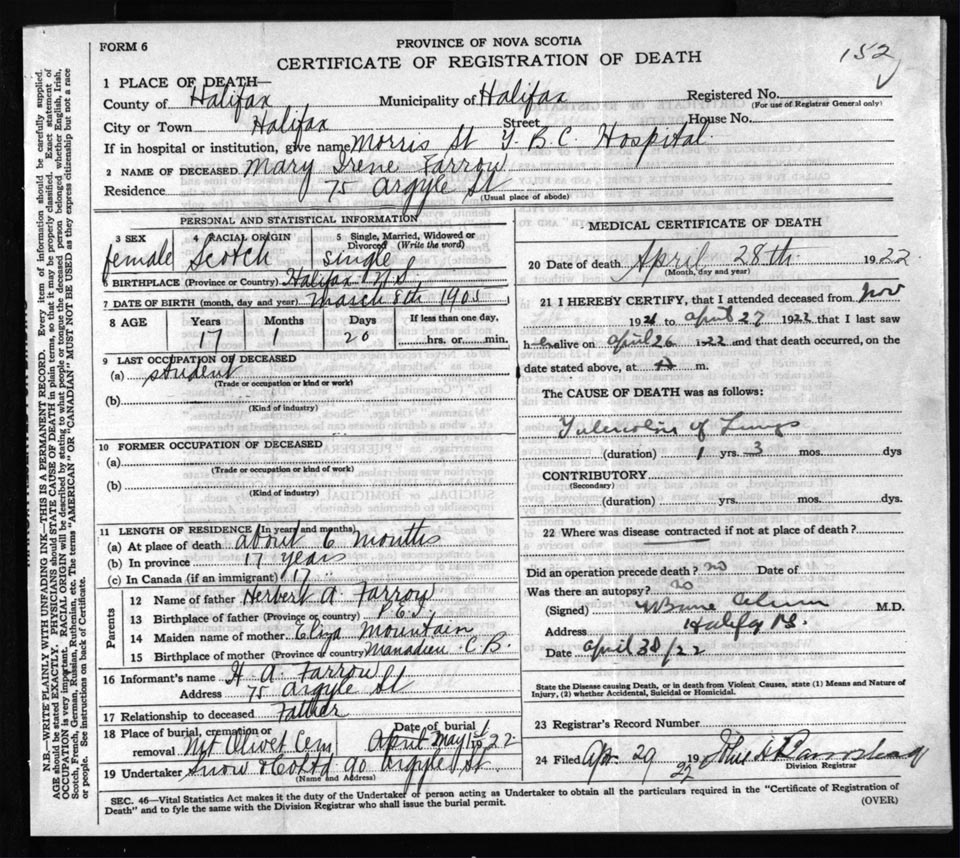 FORM 6
PROVINCE OF NOVA SCOTIA
CERTIFICATE OF REGISTRATION OF DEATH
152
1 PLACE OF DEATH—
County of Halifax Municipality of Halifax Registered No.
(For use of Registrar General only)
City or Town Halifax Street House No.
If in hospital or institution, give name Morris St T. B. C. Hospital
2 NAME OF DECEASED Mary Irene Farrow
Residence 75 Argyle St
(Usual place of abode)
PERSONAL AND STATISTICAL INFORMATION
3 SEX 4 RACIAL ORIGIN 5 Single, Married, Widowed or
Divorced (Write the word)
female Scotch single
6 BIRTHPLACE (Province or Country) Halifax N.S.
7 DATE OF BIRTH (month, day and year) March 8th 1905
8 AGE Years Months Days If less than one day,
17 1 20 hrs. or min.
9 LAST OCCUPATION OF DECEASED
(a) student
(Trade or occupation or kind or work)
(b)
(Kind of industry)
10 FORMER OCCUPATION OF DECEASED
(a)
(Trade or occupation or kind of work)
(b)
(Kind of industry)
11 LENGTH OF RESIDENCE (In years and months)
(a) At place of death about 6 months
(b) In province 17 years
(c) In Canada (if an immigrant) 17 "
Parents
12 Name of father Herbert A. Farrow
13 Birthplace of father (Province or country) P.E.I.
14 Maiden name of mother Eliza Mountain
15 Birthplace of mother (Province or country) C.B.
16 Informant's name H. A. Farrow
Address 75 Argyle St
17 Relationship to deceased Father
18 Place of burial, cremation or Date of burial
removal Mt Olivet Cem April May 1st 1922
19 Undertaker Snow & Co Ltd 90 Argyle St.
(Name and Address)
MEDICAL CERTIFICATE OF DEATH
20 Date of death April 28th 1922
(Month, day and year)
21 I HEREBY CERTIFY, that I attended deceased from Nov
1921 to April 27 1922 that I last saw
her alive on April 26 1922 and that death occurred, on the
date stated above, at m.
The CAUSE OF DEATH was as follows:
Tuberculosis of Lungs
(duration) 1 yrs. 3 mos. dys
CONTRIBUTORY
(Secondary)
(duration) yrs. mos. dys
22 Where was disease contracted if not at place of death?
Did an operation precede death? no Date of
Was there an autopsy? no
(Signed) M.D.
Address Halifax N.S.
Date April /22
State the Disease causing Death, or in death from Violent Causes, state (1) Means and Nature of
Injury, (2) whether Accidental, Suicidal or Homicidal.
23 Registrar's Record Number
24 Filed Apr. 29 1922
Division Registrar
SEC. 46—Vital Statistics Act makes it the duty of the Undertaker or person acting as Undertaker to obtain all the particulars required in the "Certificate of Registration of
Death" and to fyle the same with the Division Registrar who shall issue the burial permit.
(OVER)
N.B.—WRITE PLAINLY WITH UNFADING INK—THIS IS A PERMANENT RECORD. Every item of information should be carefully supplied.
AGE should be stated EXACTLY. PHYSICIANS should STATE CAUSE OF DEATH in plain terms, so that it may be properly classified. Exact statement of
OCCUPATION is very important. RACIAL ORIGIN will be described by stating to what people or tongue the deceased person belonged whether English, Irish,
Scotch, French, German, Russian, Ruthenian, etc. The terms "AMERICAN" OR "CANADIAN" MUST NOT BE USED as they express citizenship but not a race
or people. See instructions on back of Certificate.